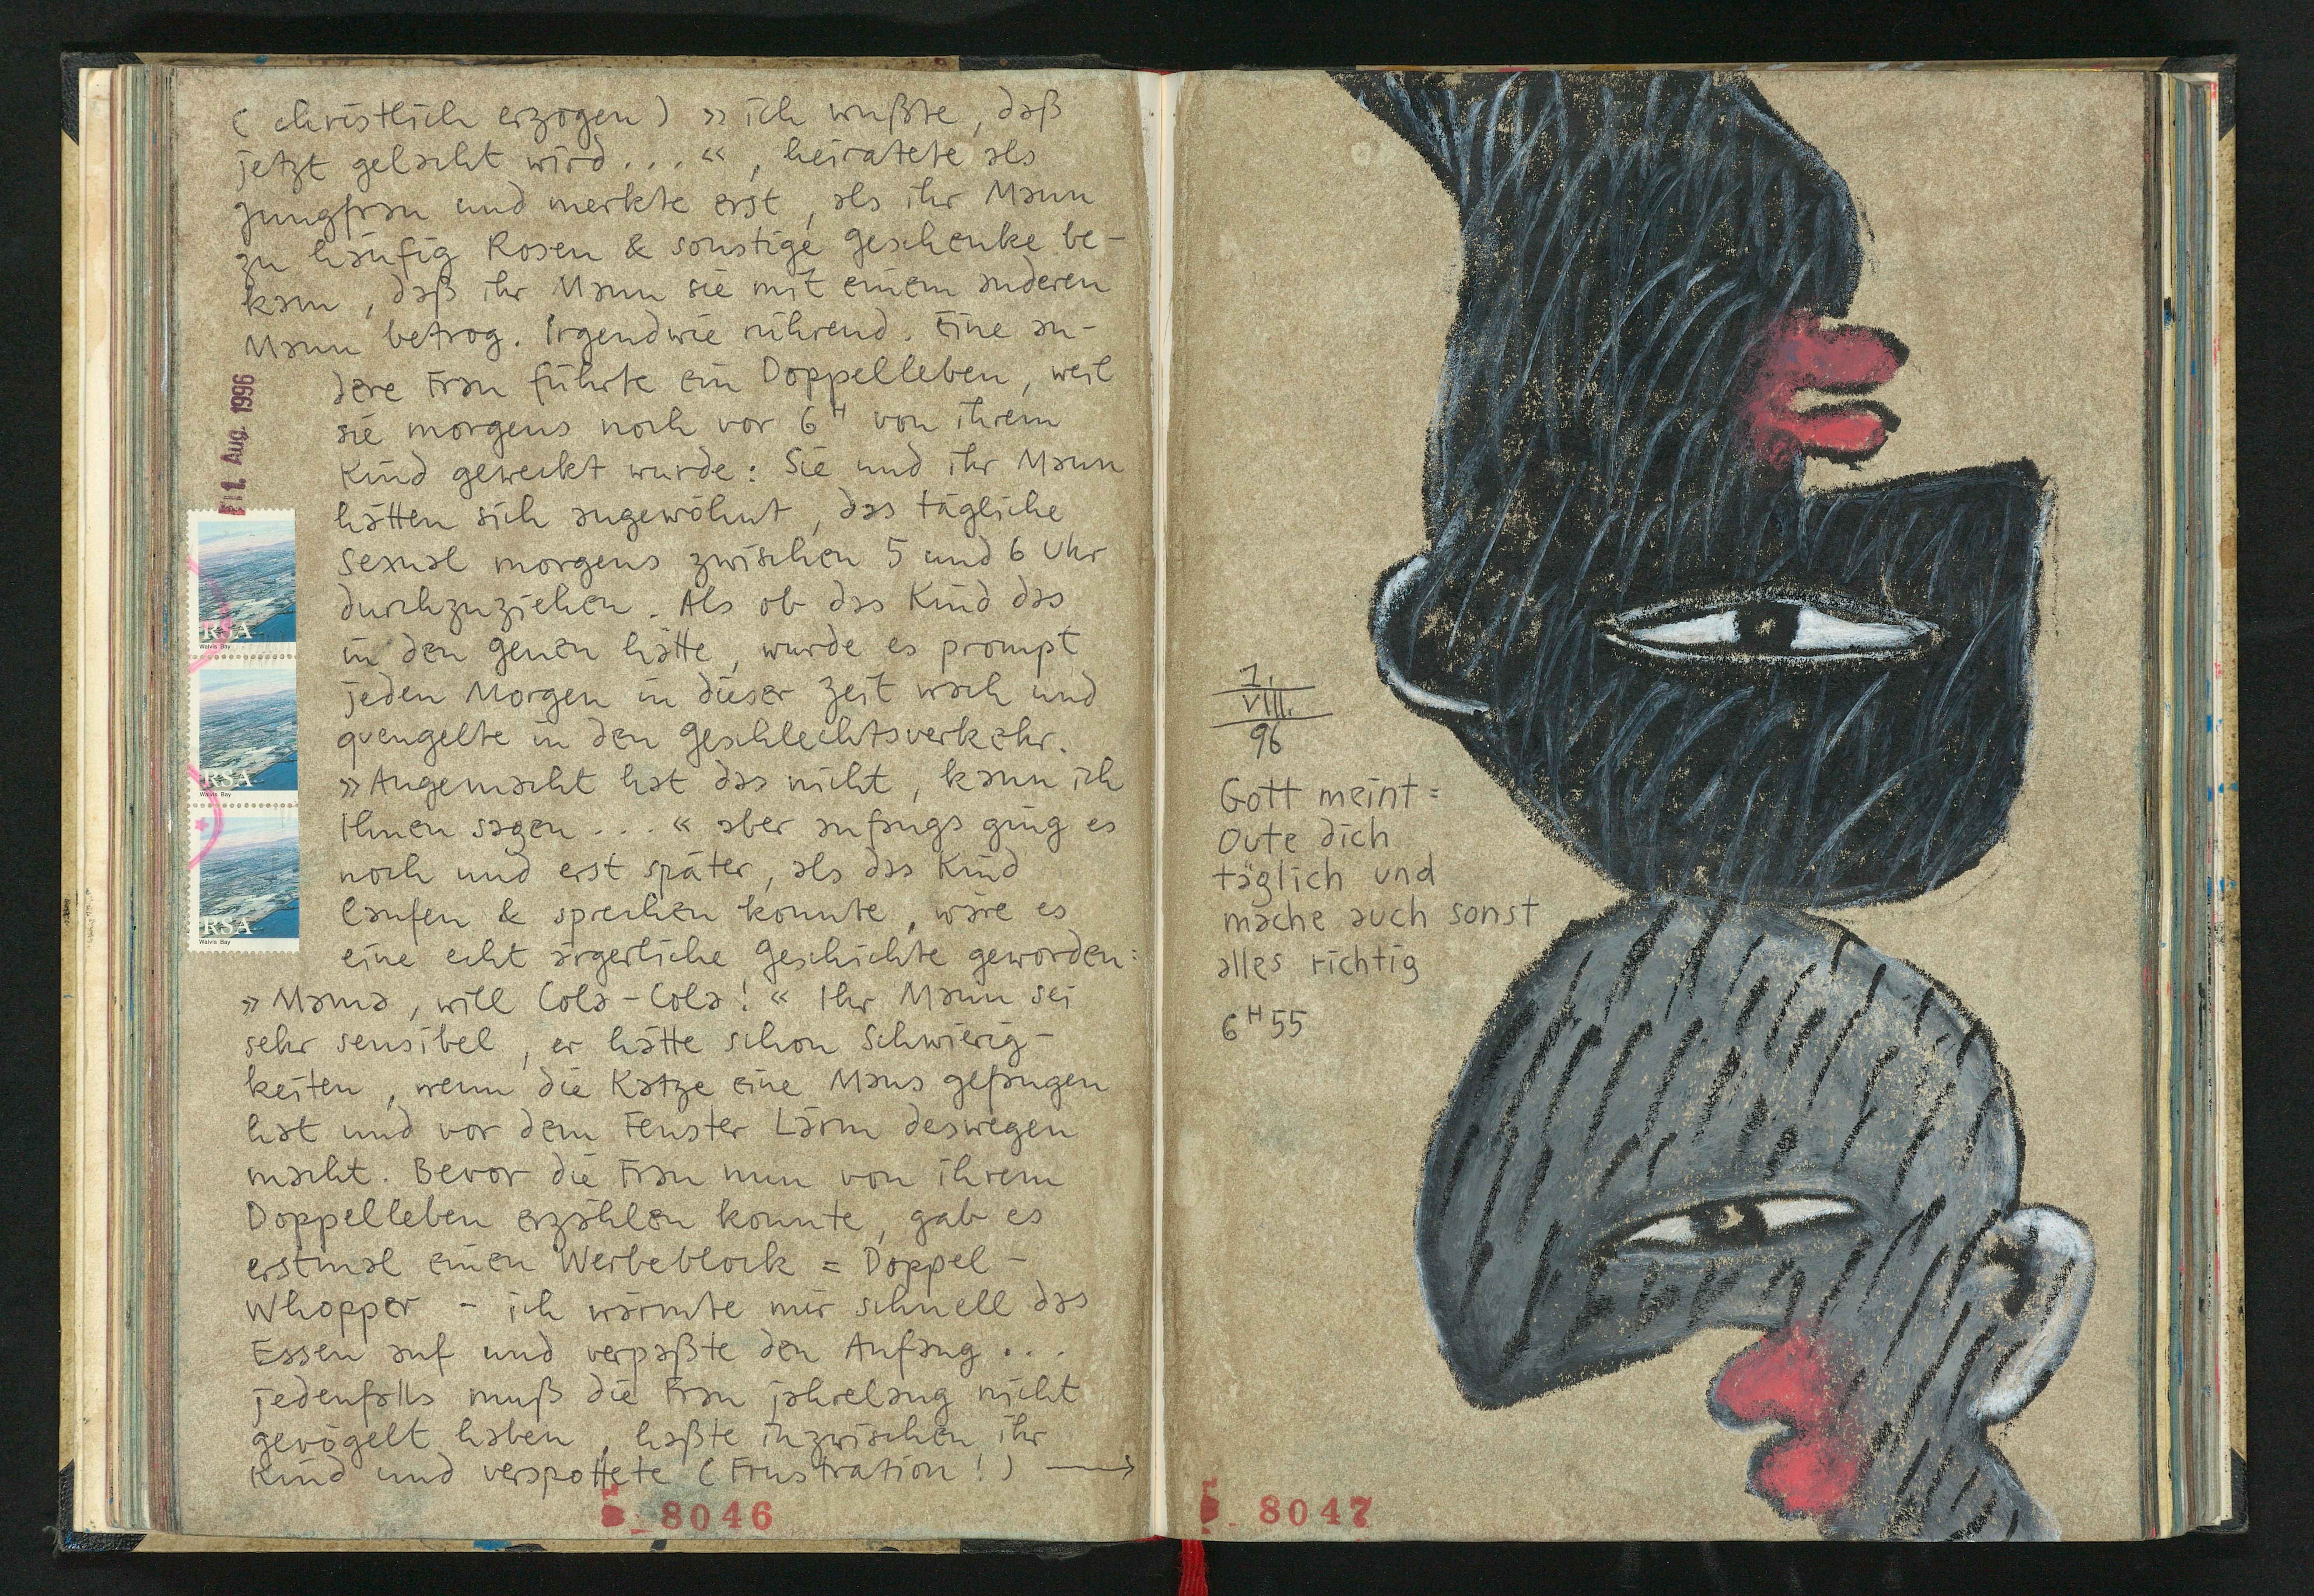 ( christlich erzogen ) » ich wußte, daß
jetzt gelacht wird . . . « , heiratete als
Jungfrau und merkte erst, als ihr Mann
zu häufig Rosen & sonstige Geschenke be-
kam, daß ihr Mann sie mit einem anderen
Mann betrog. Irgendwie rührend. Eine an-
dere Frau führte ein Doppelleben, weil
sie morgens noch vor 6 H von ihrem
Kind geweckt wurde: Sie und ihr Mann
hätten sich angewöhnt, das tägliche
Sexual morgens zwischen 5 und 6 Uhr
durchzuziehen. Als ob das Kind das
in den Genen hätte, wurde es prompt
jeden Morgen in dieser Zeit wach und
quengelte in den Geschlechtsverkehr.
» Angemacht hat das nicht, kann ich
Ihnen sagen . . . « aber anfangs ging es
noch und erst später, als das Kind
laufen & sprechen konnte, wäre es
eine echt ärgerliche Geschichte geworden:
» Mama, will Cola-Cola! « Ihr Mann sei
sehr sensibel, er hätte schon Schwierig-
keiten, wenn die Katze eine Maus gefangen
hat und vor dem Fenster Lärm deswegen
macht. Bevor die Frau nun von ihrem
Doppelleben erzählen konnte, gab es
erstmal einen Werbeblock = Doppel-
Whopper - ich wärmte mir schnell das
Essen auf und verpaßte den Anfang . . .
jedenfalls muß die Frau jahrelang nicht
gevögelt haben, haßte inzwischen ihr
Kind und verspottete (Frustration!) →
1. Aug. 1996
RSA
Walvis Bay
RSA
Walvis Bay
RSA
Walvis Bay
8046
1.
VIII.
96
Gott meint =
Oute dich
täglich und
mache auch sonst
alles richtig
6 H 55
8047